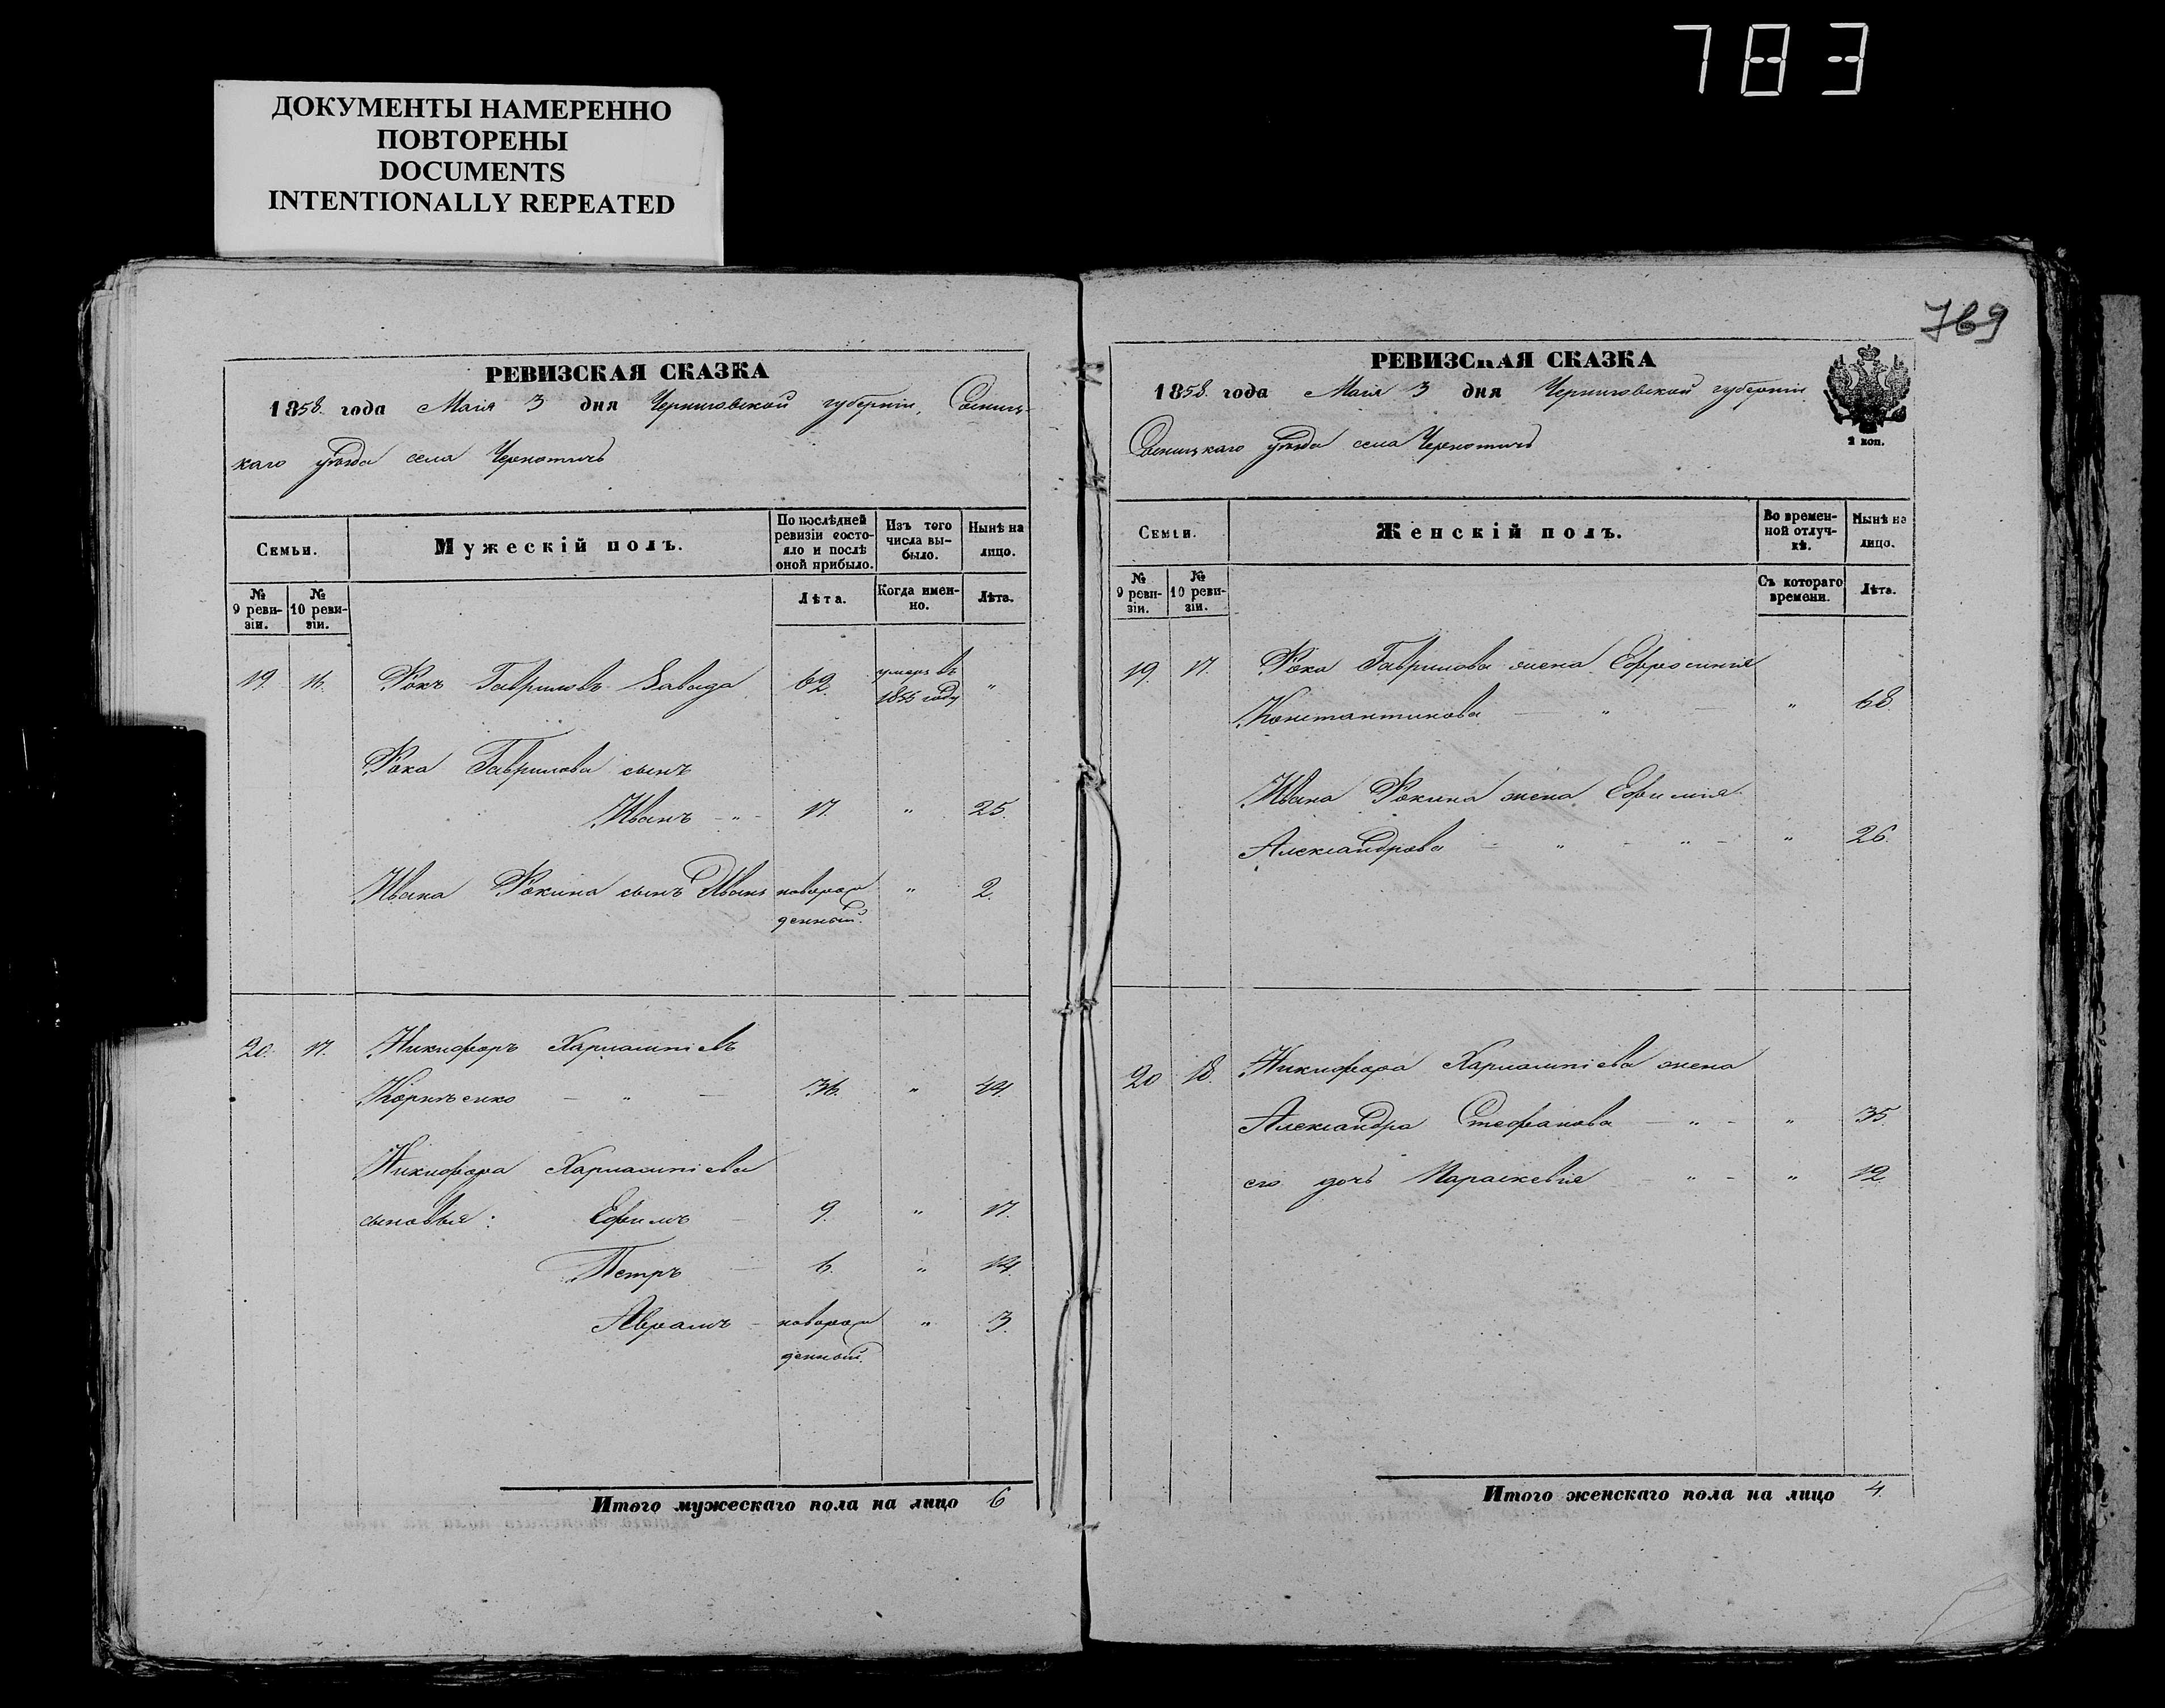 783
ДОКУМЕНТЫ НАМЕРЕННО
ПОВТОРЕНЫ
DOCUMENTS
INTENTIONALLY REPEATED
РЕВИЗСКАЯ СКАЗКА
1858 года Маія 3 дня Черниговской губерніи, Сосниц-
каго уѣзда села Чернотичъ
Семьи.
Мужескій полъ.
По послѣдней ревизіи состо-
яло и послѣ оной прибыло.
Изъ того числа вы-
было.
Нынѣ на лицо.
№ 9 реви-
зіи.
№ 10 реви-
зіи.
Лѣта.
Когда имен-
но.
Лѣта.
19. 16. Рокъ Гавриловъ 62. умеръ въ
1855 году "
Рока Гаврилова сынъ
Иванъ - " - 17. " 25.
Ивана Рокина сынъ Иванъ новорож
денный. " 2.
20. 17. Никифоръ Харлампіевъ
Корніенко — " — 36. " 44.
Никифора Харлампіева
сыновья: Ефимъ — 9. " 17.
Петръ — 6. " 14.
Аврамъ - новорож " 3.
денный.
Итого мужескаго пола на лицо 6
769
РЕВИЗСКАЯ СКАЗКА
1858 года Маія 3 дня Черниговской губерніи
Сосницкаго уѣзда села Чернотичъ
2 коп.
Семьи.
Женскій полъ.
Во времен-
ной отлуч-
кѣ.
Нынѣ на
лицо.
№ 9 реви-
зіи.
№ 10 реви-
зіи.
Съ котораго
времени.
Лѣта.
19. 17. Рока Гаврилова жена Ефросинія
Константинова — " — " 68.
Ивана Рокина жена Ефимія
Александрова - " - " - " 26.
20 18. Никифора Харлампіева жена
Александра Стефанова — " - " 35.
его дочь Параскевія - " - " 12
Итого женскаго пола на лицо 4.